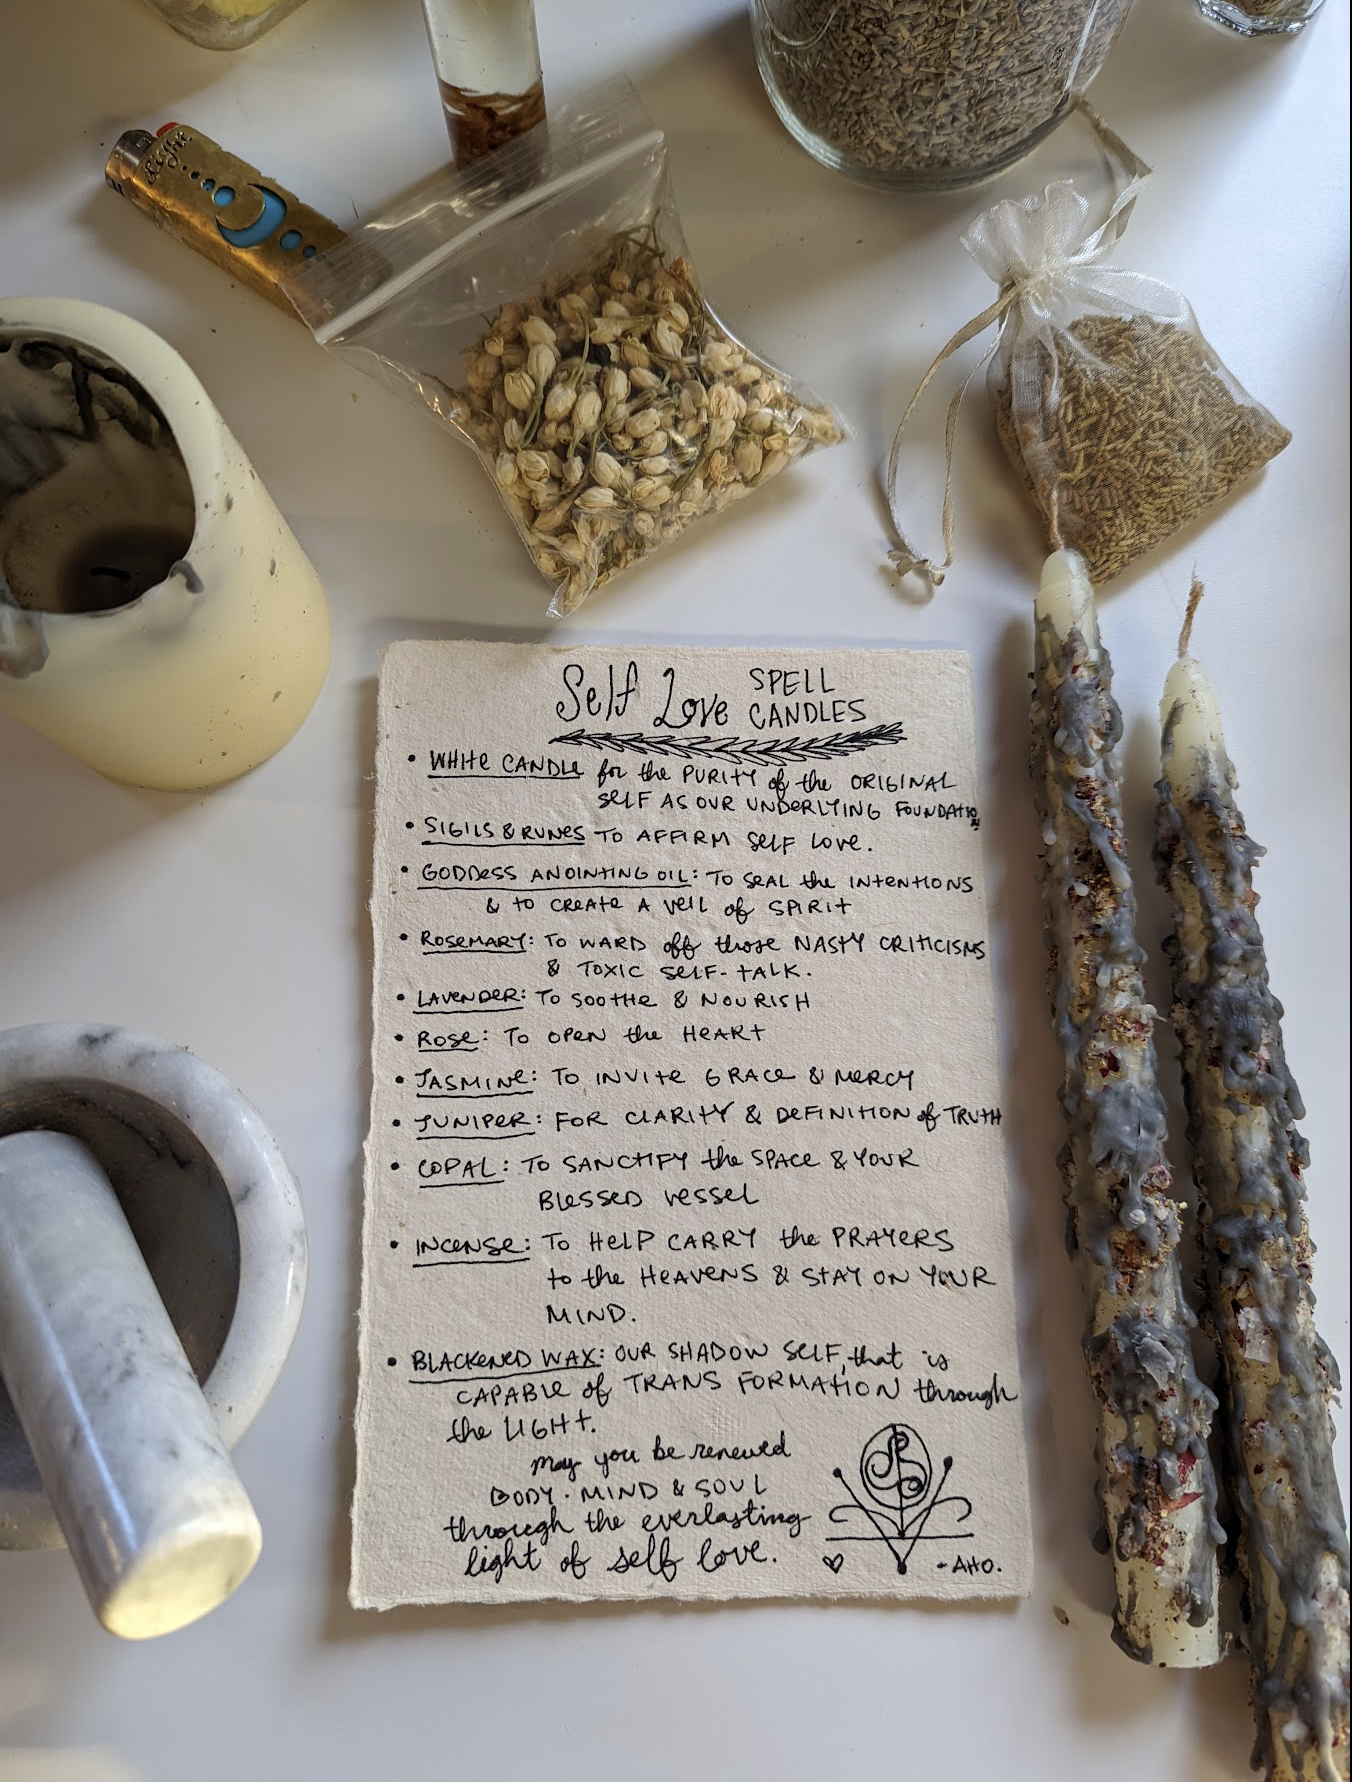 Light
Self Love SPELL
CANDLES
• WHITE CANDLE for the PURITY of the ORIGINAL
SELF AS OUR UNDERLYING FOUNDATION
• SIGILS & RUNES TO AFFIRM SELF LOVE.
• GODDESS ANOINTING OIL: TO SEAL the INTENTIONS
& to CREATE A VEIL of SPIRIT
• ROSEMARY: TO WARD off those NASTY CRITICISMS
& TOXIC SELF-TALK.
• LAVENDER: TO SOOTHE & NOURISH
• ROSE: TO OPEN the HEART
• JASMINE: TO INVITE GRACE & MERCY
• JUNIPER: FOR CLARITY & DEFINITION of TRUTH
• COPAL: TO SANCTIFY the SPACE & YOUR
BLESSED VESSEL
• INCENSE: TO HELP CARRY the PRAYERS
to the HEAVENS & STAY ON YOUR
MIND.
• BLACKENED WAX: OUR SHADOW SELF, that is
CAPABLE of TRANSFORMATION through
the LIGHT.
may you be renewed
BODY · MIND & SOUL
through the everlasting
light of self love.
- AHO.